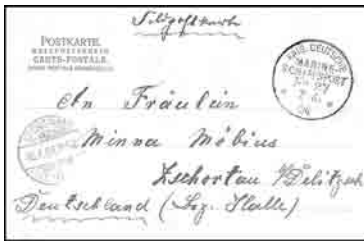 Feldpostkarte
POSTKARTE.
WELTPOSTVEREIN
CARTE-POSTALE.
KAIS. DEUTSCHE
MARINE-
SCHIFFSPOST
No 27
An Fräulein
Minna Möbius
Zschortau b/Delitzsch
Deutschland (Bez. Halle)